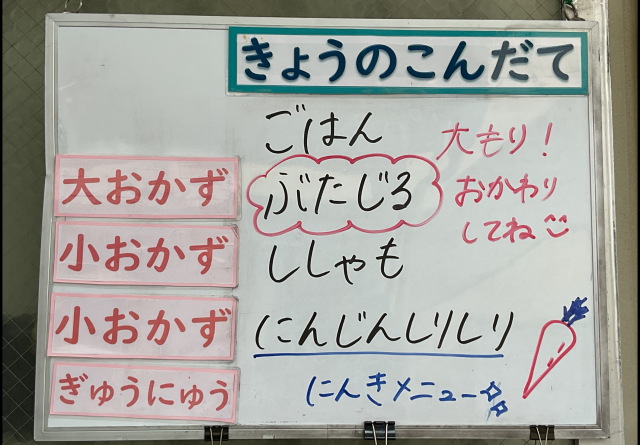 きょうのこんだて
ごはん
大もり！
大おかず ぶたじる
おかわり
してね
小おかず ししゃも
小おかず にんじんしりしり
ぎゅうにゅう
にんきメニュー